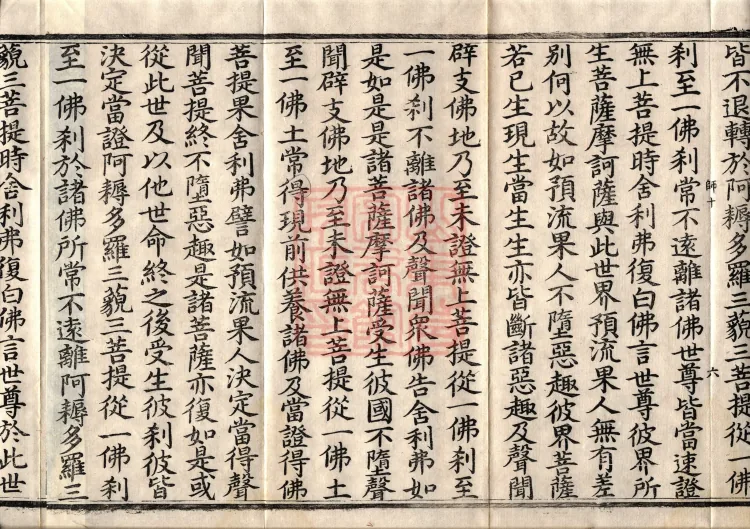 皆不退轉於阿耨多羅三藐三菩提從一佛
刹至一佛刹常不遠離諸佛世尊皆當速證
師十 六
無上菩提時舍利弗復白佛言世尊彼界所
生菩薩摩訶薩與此世界預流果人無有差
別何以故如預流果人不墮惡趣彼界菩薩
若已生現生當生生亦皆斷諸惡趣及聲聞
辟支佛地乃至未證無上菩提從一佛刹至
一佛刹不離諸佛及聲聞衆佛告舍利弗如
是如是是諸菩薩摩訶薩受生彼國不墮聲
聞辟支佛地乃至未證無上菩提從一佛土
至一佛土常得現前供養諸佛及當證得佛
菩提果舍利弗譬如預流果人決定當得聲
聞菩提終不墮惡趣是諸菩薩亦復如是或
從此世及以他世命終之後受生彼刹彼皆
決定當證阿耨多羅三藐三菩提從一佛刹
至一佛刹於諸佛所常不遠離阿耨多羅三
藐三菩提時舍利弗復白佛言世尊於此世